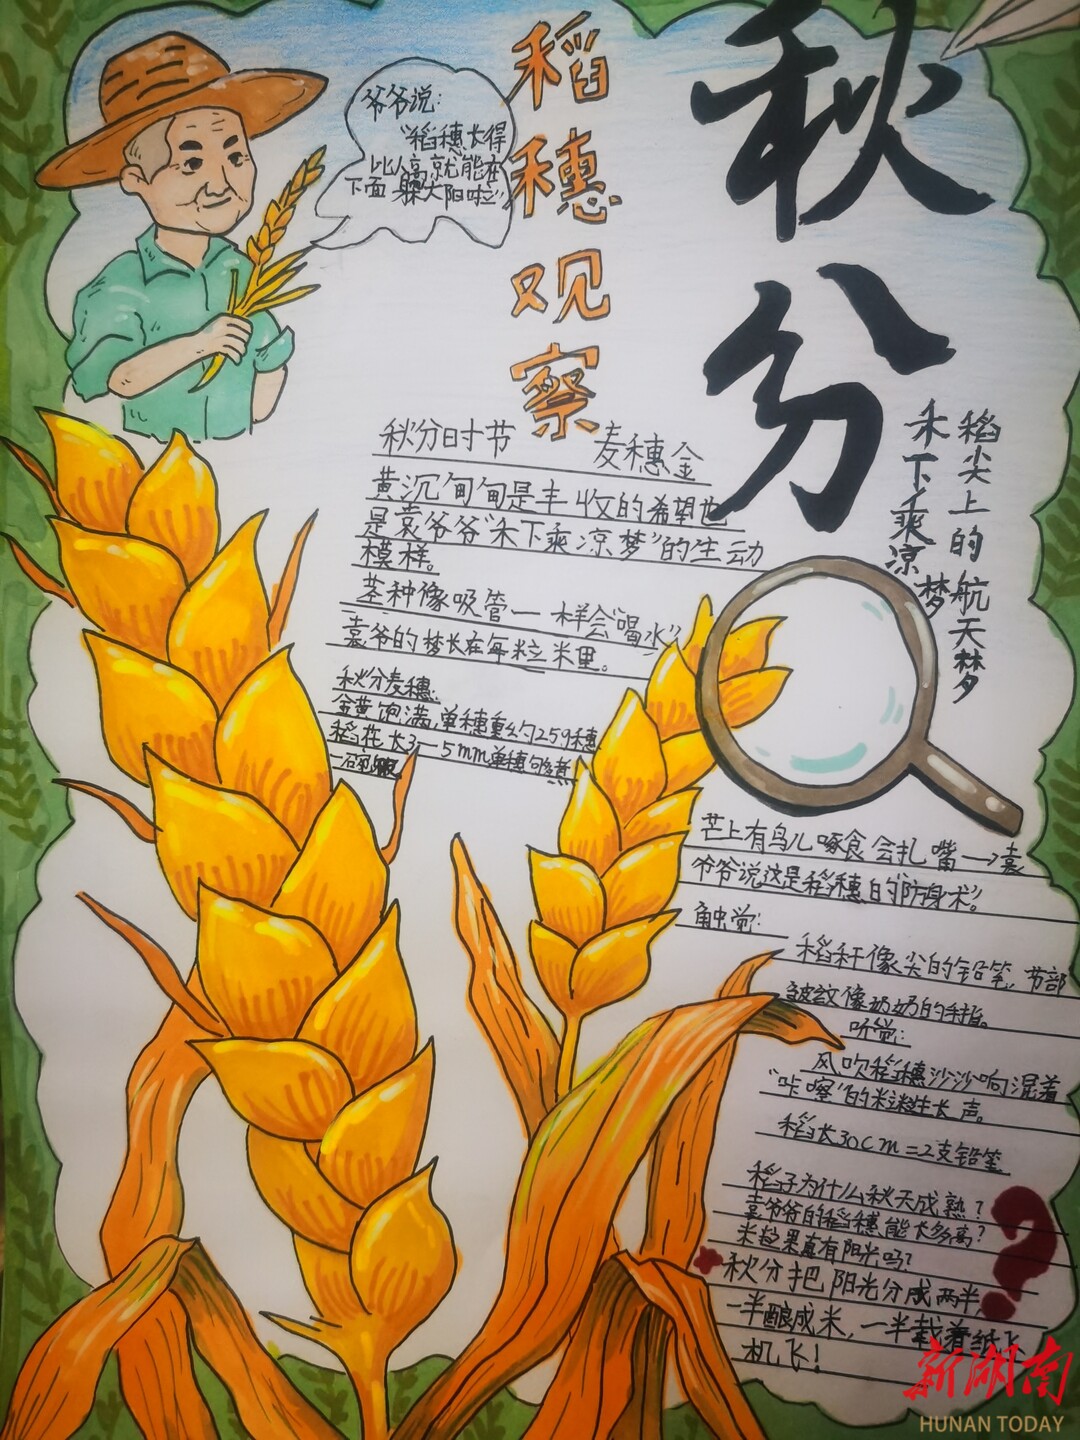 秋分
稻穗观察
爷爷说:
"稻穗长得
比人高就能在
下面躲太阳啦"
稻尖上的航天梦
禾下乘凉梦
秋分时节 麦穗金
黄沉甸甸是丰收的希望也
是袁爷爷"禾下乘凉梦"的生动
模样。
茎种像吸管一样会"喝水"
袁爷的梦长在每粒米里。
秋分麦穗:
金黄饱满,单穗重约259穗
稻花长3-5mm单穗够煮
一碗
芒上有鸟儿啄食会扎嘴→袁
爷爷说这是稻穗的"防身术"。
触觉:
稻秆像尖的铅笔,节部
皱纹像奶奶的手指。
听觉:
风吹稻穗沙沙响混着
"咔嚓"的米粒生长声。
稻长30cm=2支铅笔
稻子为什么秋天成熟?
袁爷爷的稻穗能长多高?
米粒里真有阳光吗?
秋分把阳光分成两半
一半酿成米,一半载着纸飞
机飞!
?
新湖南
HUNAN TODAY